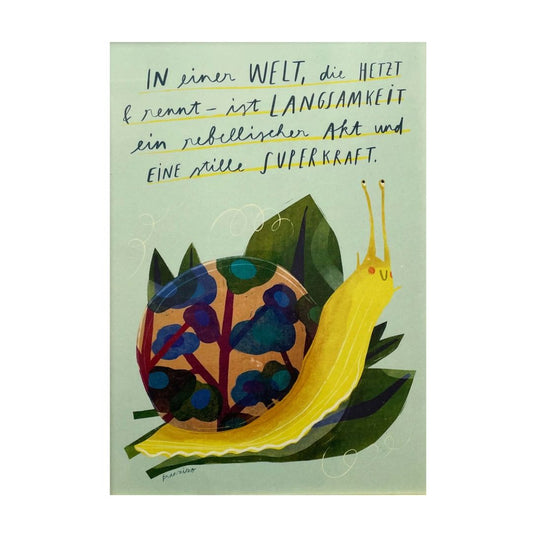 IN einer WELT, die HETZT
& rennt – ist LANGSAMKEIT
ein rebellischer Akt und
EINE stille SUPERKRAFT.